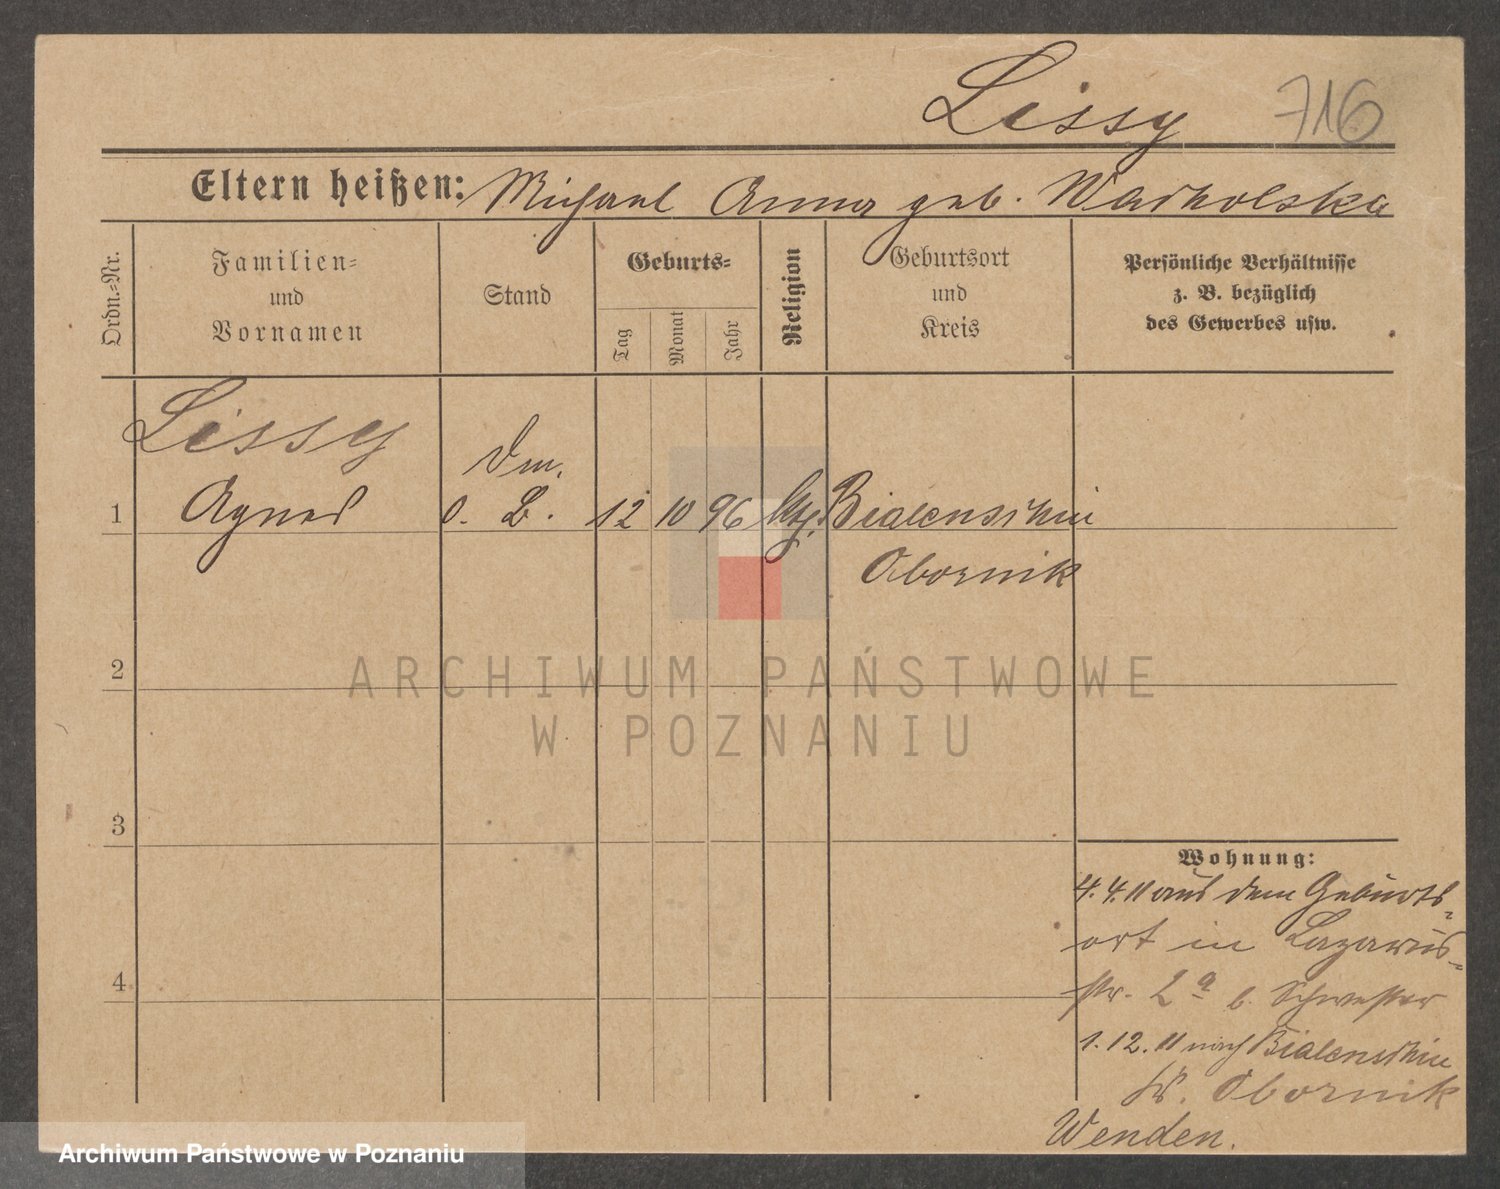 Lissy 716
Eltern heißen: Michael Anna geb. Warholska
Ordn.-Nr.
Familien-
und
Vornamen
Stand
Geburts-
Tag
Monat
Jahr
Religion
Geburtsort
und
Kreis
Persönliche Verhältnisse
z. B. bezüglich
des Gewerbes usw.
Lissy
1 Agnes
o. B. 12 10 96 ktl. Bialenschin
Obornik
2
3
4
Wohnung:
4. 4. 11 aus dem Geburts-
ort in Lazarus-
str. 2a b. Schwester
1. 12. 11 nach Bialenschin
Kr. Obornik
Wenden.
ARCHIWUM PAŃSTWOWE
W POZNANIU
Archiwum Państwowe w Poznaniu